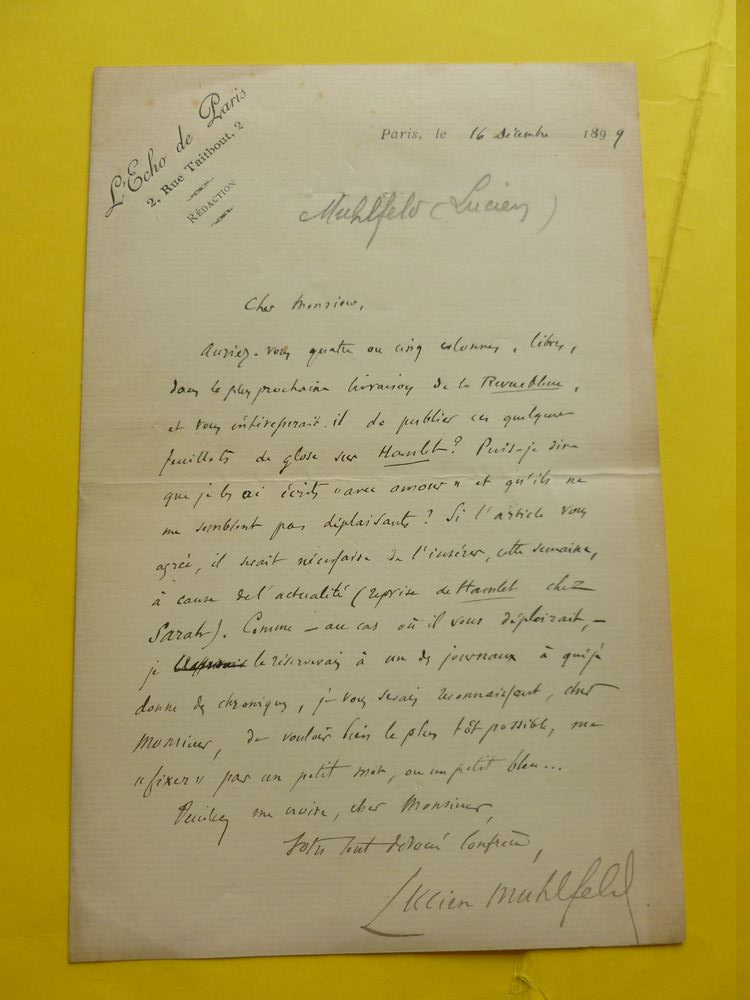 L'Echo de Paris
2, Rue Taitbout, 2
RÉDACTION
Paris, le 16 Décembre 1899
Muhlfeld (Lucien)
Cher Monsieur,
Auriez-vous quatre ou cinq colonnes, libres,
dans la plus prochaine livraison de la Revue bleue,
et vous intéresserait-il de publier ces quelques
feuillets de glose sur Hamlet? Puis-je dire
que je les ai écrits "avec amour" et qu'ils ne
me semblent pas déplaisants? Si l'article vous
agrée, il serait nécessaire de l'insérer, cette semaine,
à cause de l'actualité (reprise de Hamlet chez
Sarah). Comme – au cas où il vous déplairait, –
je le réserverais à un des journaux à qui je
donne des chroniques, je vous serais reconnaissant, cher
Monsieur, de vouloir bien le plus tôt possible, me
"fixer" par un petit mot, ou un petit bleu...
Veuillez me croire, cher Monsieur,
Votre tout dévoué Confrère,
Lucien Muhlfeld.